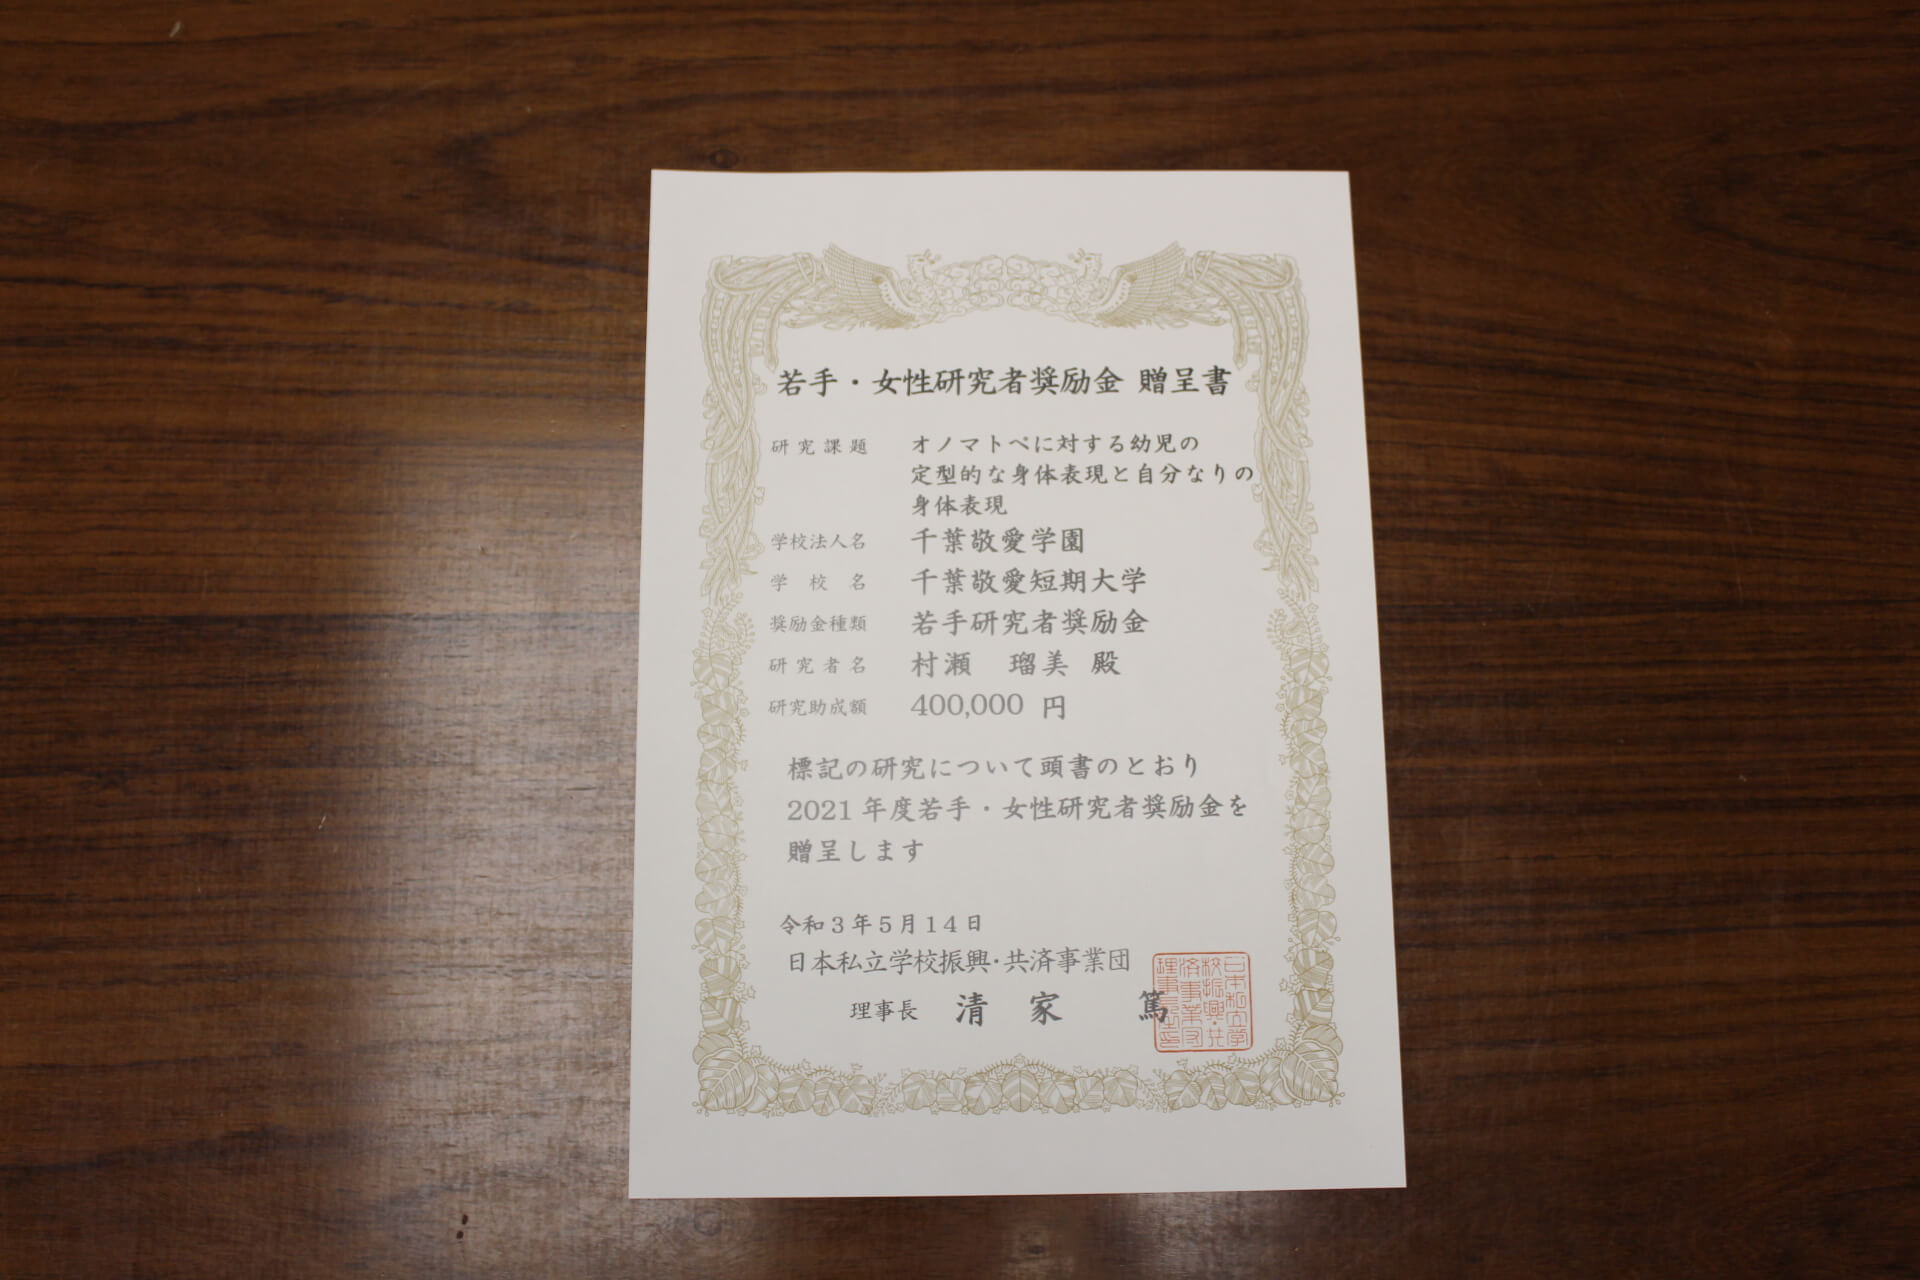 若手・女性研究者奨励金 贈呈書
研究課題 オノマトペに対する幼児の
定型的な身体表現と自分なりの
身体表現
学校法人名 千葉敬愛学園
学校名 千葉敬愛短期大学
奨励金種類 若手研究者奨励金
研究者名 村瀬 瑠美 殿
研究助成額 400,000 円
標記の研究について頭書のとおり
2021年度若手・女性研究者奨励金を
贈呈します
令和3年5月14日
日本私立学校振興・共済事業団
理事長 清家 篤
日本私立学
校振興・共
済事業団